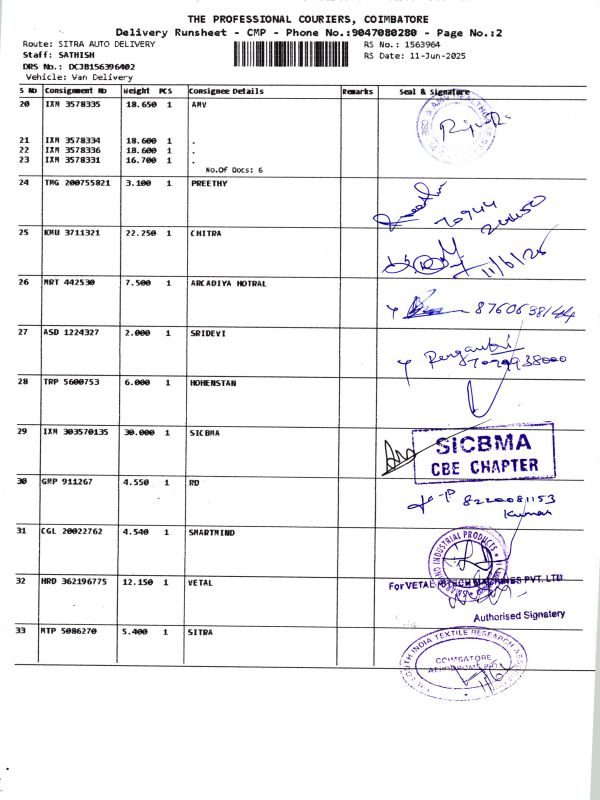 THE PROFESSIONAL COURIERS, COIMBATORE
Delivery Runsheet - CMP - Phone No.:9047080280 - Page No.:2
Route: SITRA AUTO DELIVERY RS No.: 1563964
Staff: SATHISH RS Date: 11-Jun-2025
DRS No.: DCJB156396402
Vehicle: Van Delivery
S No Consignment No Weight PCS Consignee Details Remarks Seal & Signature
20 IXM 3578335 18.650 1 AMV
21 IXM 3578334 18.600 1 .
22 IXM 3578336 18.600 1 .
23 IXM 3578331 16.700 1 .
No.Of Docs: 6
24 TMG 200755821 3.100 1 PREETHY
70944
25 KMU 3711321 22.250 1 CHITRA
11/6/25
26 MRT 442530 7.500 1 ARCADIYA HOTRAL
8760638144
27 ASD 1224327 2.000 1 SRIDEVI
28 TRP 5600753 6.000 1 HOHENSTAN
29 IXM 303570135 30.000 1 SICBMA
SICBMA
CBE CHAPTER
30 GMP 911267 4.550 1 RD
8220081153
Kumar
31 CGL 20022762 4.540 1 SMARTMIND
AND INDUSTRIAL PRODUCTS
32 HRD 362196775 12.150 1 VETAL
For VETAL HITECH MACHINES PVT. LTD
Authorised Signatery
33 MTP 5086270 5.400 1 SITRA
THE SOUTH INDIA TEXTILE RESEARCH ASSOCIATION
COIMBATORE
AERODROME POST